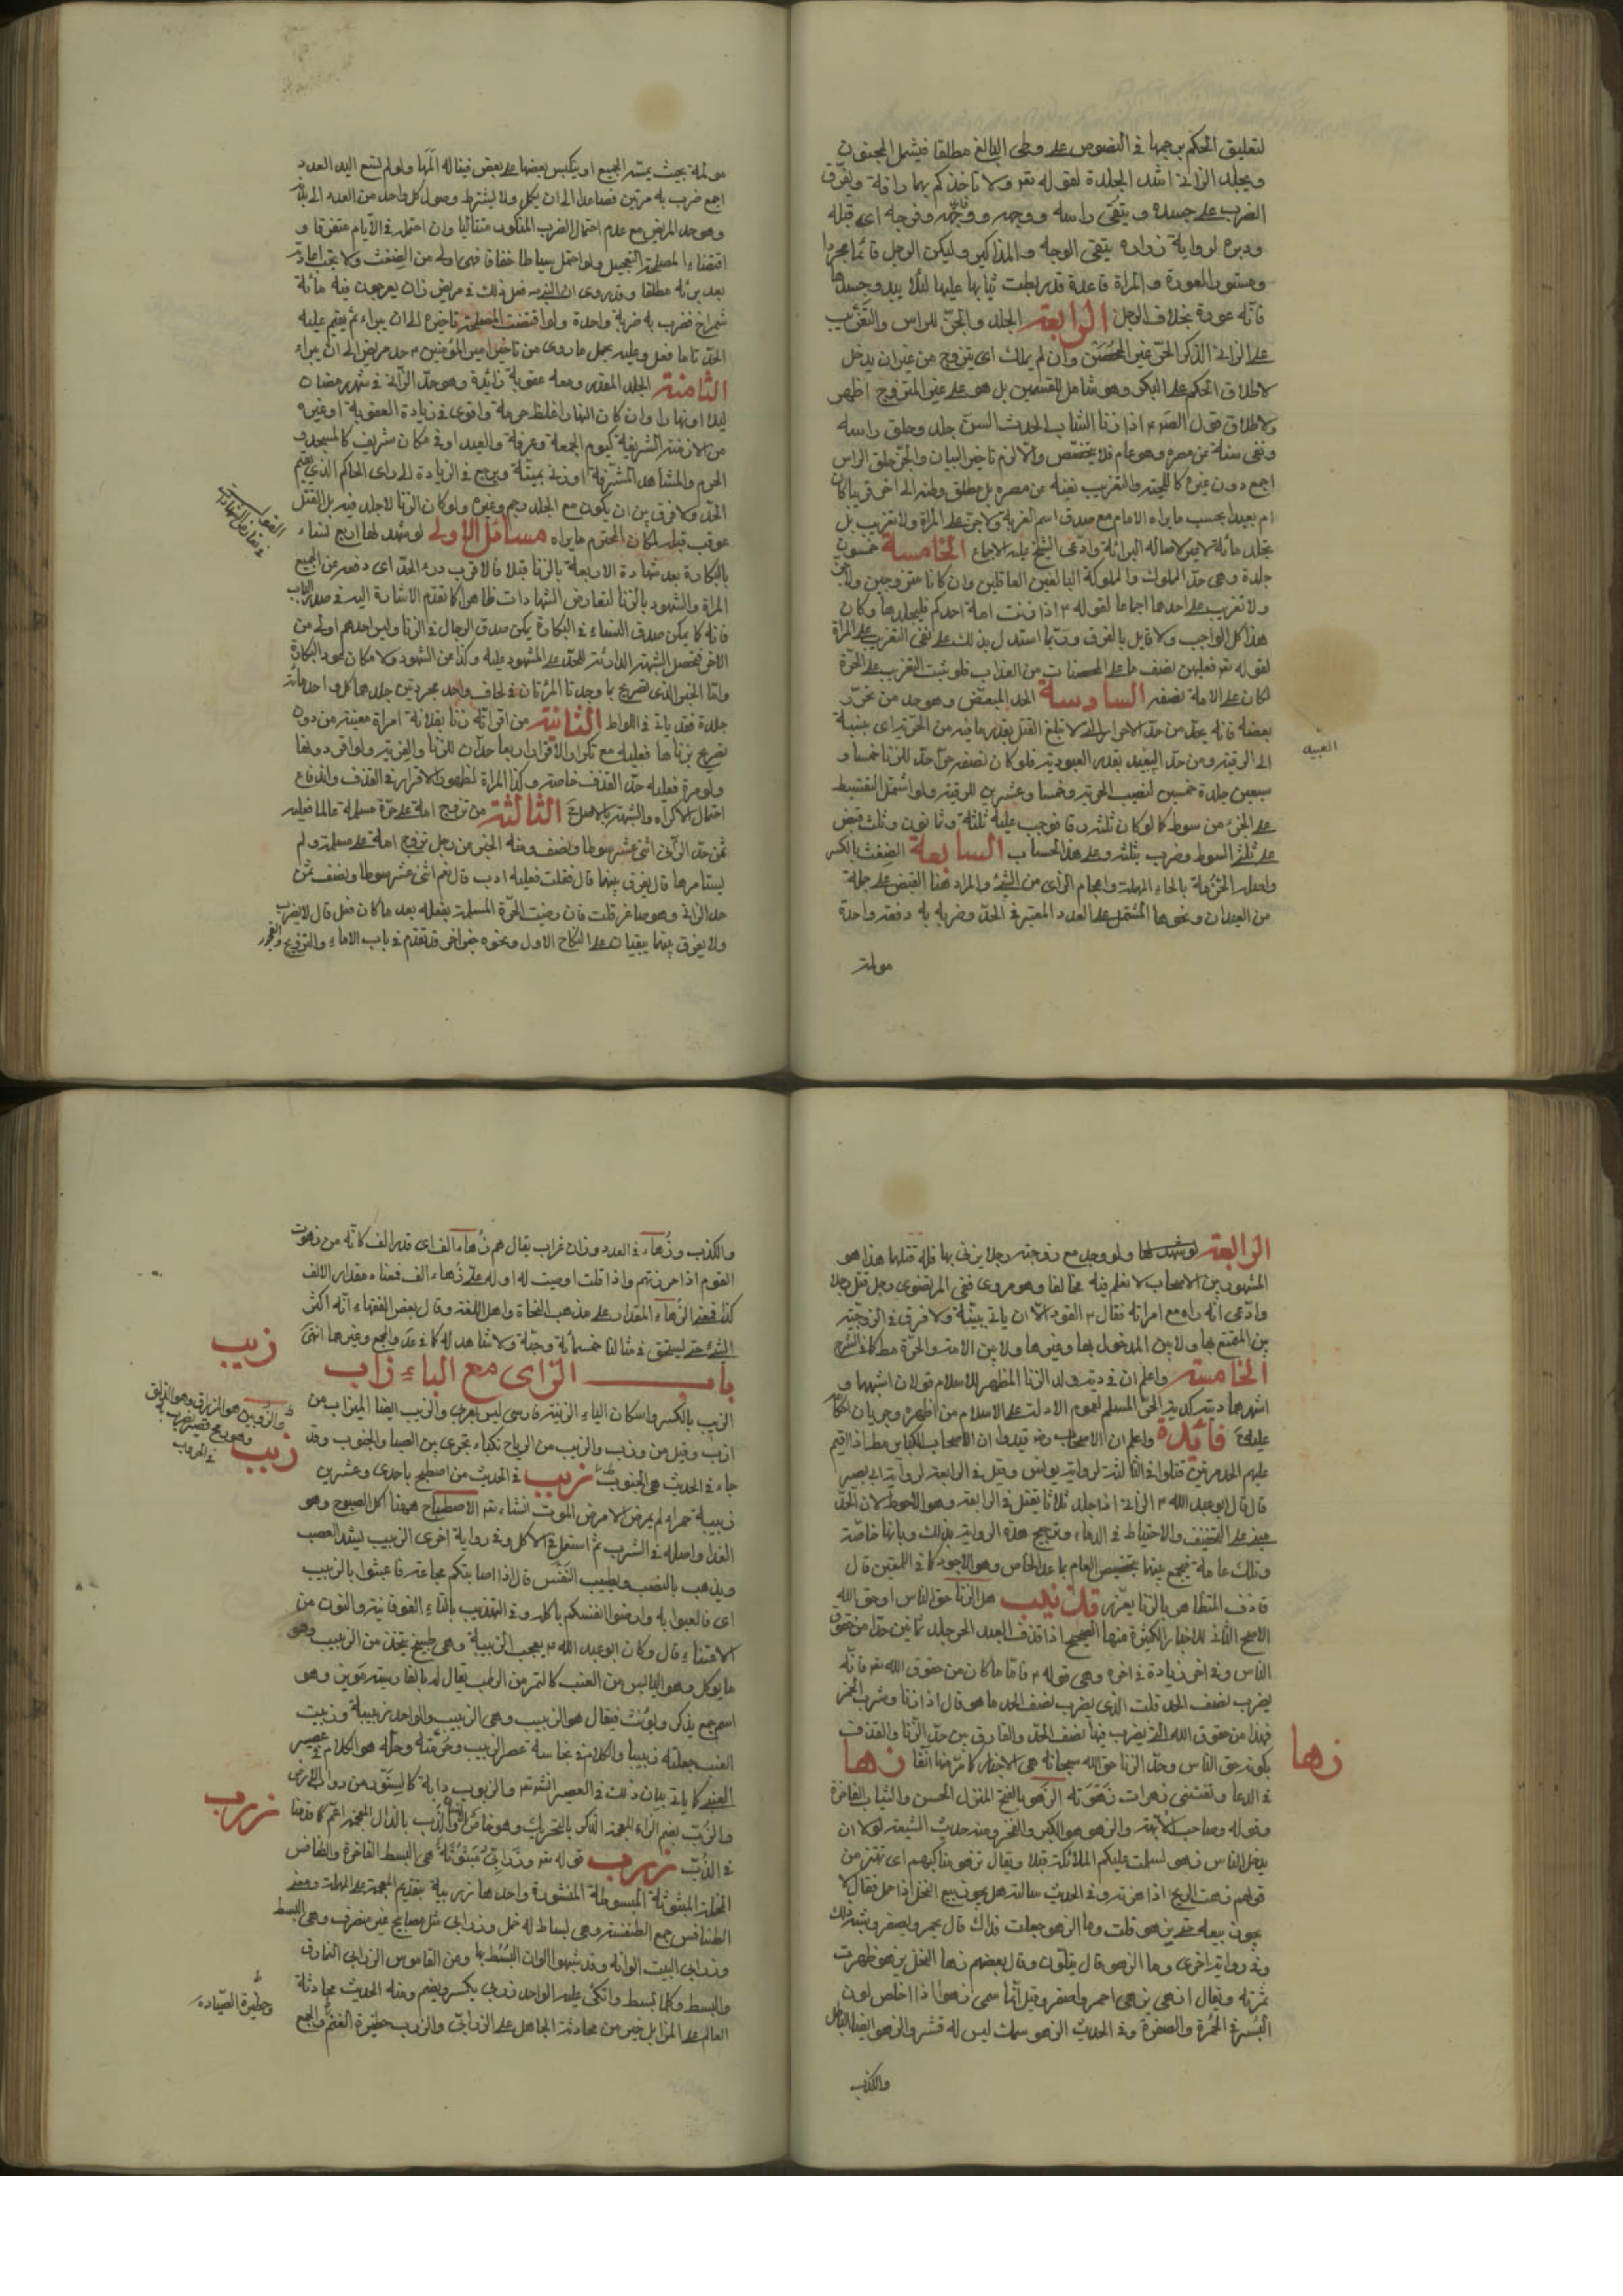 لتعليق الحكم برجمها في النصوص على وطي البالغ مطلقا فيشمل المجنون
ويجلد الزاني اشد الجلدة لقوله تعو ولا تاخذكم بهما رافة ويفرق
الضرب على جسده ويتقى راسه ووجهه وفرجه اي قبله
ودبره لرواية زراره يتقى الوجه والمذاكير وليكن الرجل قائما مجردا
ومستور العورة والمراة قاعدة قد ربطت ثيابها عليها لئلا يبدو جسدها
فانه عورة بخلاف الرجل الرابعة الجلد والجز للراس والتغريب
على الزاني الذكر الحر غير المحصن وان لم يملك اي يتزوج من غير ان يدخل
لاطلاق الحكم على البكر وهو شامل للقسمين بل هو على غير المتزوج اظهر
ولاطلاق قول الصم اذا زنا الشاب الحدث السن جلد وحلق راسه
ونفى سنة من مصره وهو عام فلا يتخصص والا لزم تاخير البيان والجز حلق الراس
اجمع دون غيره كاللحية والتغريب نفيه عن مصره بل مطلق وطنه الى اخر قريبا كان
ام بعيدا بحسب ما يراه الامام مع صدق اسم الغربة ولا جز على المراة ولا تغريب بل
يجلد مائة لا غير لاصالة البرائة وادعى الشيخ عليه الاجماع الخامسة خمسون
جلدة وهي حد المملوك والمملوكة البالغين العاقلين وان كانا متزوجين ولا جز
ولا تغريب على احدهما اجماعا لقوله ٢ اذا زنت امة احدكم فليجلدها وكان
هذا كل الواجب ولا قايل بالفرق وربما استدل بذلك على نفي التغريب على المراة
لقوله تعو فعليهن نصف ما على المحصنات من العذاب فلو ثبت التغريب على الحرة
لكان على الامة نصفه السادسة الحد المبعض وهو حد من تحرر
بعضه فانه يحد من حد الاحرار الذي لا تبلغ القتل بقدر ما فيه من الحرية اي بنسبة
الى الرقية ومن حد العبيد بقدر العبودية فلو كان نصفه حرا حد للزنا خمسا و
العبيد
سبعين جلدة خمسين لنصيب الحرية وخمسا وعشرين للرقية ولو اشتمل التقسيط
على الجزء من سوط كما لو كان ثلثه رقا فوجب عليه ثلثة وثمانون وثلث قبض
على ثلثي السوط وضرب بثلثه وعلى هذا الحساب السابعة الضغث بالكسر
واصله الحزمة بالحاء المهملة واعجام الزاي من الشيء والمراد هنا القبض على جملة
من العيدان ونحوها المشتمل على العدد المعتبر في الحد وضربه به دفعة واحدة
مولمة
مولمة بحيث يمسه الجميع او ينكبس بعضها على بعض فيناله المها ولو لم تسع اليد العدد
اجمع ضرب به مرتين فصاعدا الى ان يكمل ولا يشترط وصول كل واحد من العدد الى بدنه
وهو حد المريض مع عدم احتمال الضرب المتكرر متتاليا وان احتمله في الايام متفرقا و
اقتضاء المصلحة التعجيل ولو احتمل سياطا خفافا فهي اولى من الضغث ولا تجب اعادته
بعد برئه مطلقا وقد روى ان النبي ص فعل ذلك في مريض زان بعرجون فيه مائة
شمراخ فضرب به ضربة واحدة ولو اقتضت المصلحة تاخيره الى ان يبراء ثم يقيم عليه
الحد تاما فعل وعليه يحمل ما روى من تاخير امير المؤمنين ٢ حد مريض الى ان يبراء
الثامنة الجلد المقدر ومعه عقوبة زائدة وهو حد الزاني في شهر رمضان
ليلا او نهارا وان كان النهار اغلظ حرمة واقوى في زيادة العقوبة او غيره
من الازمنة الشريفة كيوم الجمعة وعرفة والعيد او في مكان شريف كالمسجد و
الحرم والمشاهد المشرفة او زنى بميتة ويرجع في الزيادة الى راي الحاكم الذي يقيم
الحد ولا فرق بين ان يكون مع الجلد رجم وغيره ولو كان الزنا لا جلد فيه بل القتل
عوقب قبله لمكان المحترم ما يراه مسائل الاولى لو شهد لها اربع نساء
بالبكارة بعد شهادة الاربعة بالزنا قبلا فالاقرب درء الحد اي دفعه عن الجميع
المراة والشهود بالزنا لتعارض الشهادات ظاهرا كما تقدم الاشارة اليه في صدر الكتاب
فانه كما يمكن صدق النساء في البكارة يمكن صدق الرجال في الزنا وليس احدهم اولى من
الاخر فتحصل الشبهة الدارئة للحد على المشهود عليه وكذا عن الشهود ولا مكان عود البكارة
واما الخبر الذي تصريح بما وجدتا المرئتان في لحاف واحد مجردتين جلد هما كل واحد مائة
جلدة فقد ياتي في اللواط الثانية من اقر انه زنا بفلانة امراة معينة من دون
تصريح بزناها فعليه مع تكرار الاقرار اربعا حدان للزنا والفرية ولو اقر دونها
ولو مرة فعليه حد القذف خاصة وكذا المراة لظهور الاقرار في القذف واندفاع
احتمال الاكراه والشبهة بالاصل الثالثة من تزوج امة على حرة مسلمة عالما فعليه
ثمن حد الزاني اثنى عشر سوطا ونصف ومنه الخبر من رجل تزوج امة على مسلمة ولم
يستامرها قال يفرق بينهما قال فقلت فعليه ادب قال نعم اثنى عشر سوطا ونصف ثمن
حد الزاني وهو صاغر قلت فان رضيت الحرة المسلمة بفعله بعد ما كان فعل قال لا يضرب
ولا يفرق بينهما يبقيان على النكاح الاول ونحوه خبر اخر قد تقدم في باب الاماء والتزويج
الرابعة ولو وجد مع زوجته رجلا يزنى بها فله قتلهما هذا هو
المشهور بين الاصحاب لا نعلم فيه مخالفا وهو مروى ففي المرتضوي رجل قتل رجلا
وادعى انه راه مع امراته فقال ٢ القود الا ان ياتي ببينة ولا فرق في الزوجية
بين المتمتع بها ولا بين المدخول بها وغيرها ولا بين الامة والحرة
الخامسة واعلم ان في دية ولد الزنا المظهر للاسلام قولان اشبهها و
اشهرهما ديته كدية الحر المسلم لعموم الادلة على الاسلام من اظهره وجريان احكامه
عليه فائدة واعلم ان الاصحاب وقد قيدوا ان الاصحاب الكباير مطـ اذا اقيم
عليهم الحد مرتين قتلوا في الثالثة لرواية يونس وقيل في الرابعة لرواية ابي بصير
قال قال ابو عبد الله ٢ الزاني اذا جلد ثلاثا يقتل في الرابعة وهو الاحوط لان الحد
مبني على التخفيف والاحتياط في الدماء وترجيح هذه الرواية بذلك وبانها خاصة
وتلك عامة فيجمع بينهما بتخصيص العام بما عدا الخاص وهو الاجود كما في اللمعتين قال
قاذف المتظاهر بالزنا يعزر هل الزنا حق الناس او حق الله
الاصح الثاني للاخبار الكثيرة منها الصحيح اذا قذف العبد الحر جلد ثمانين حدا من حقوق
الناس وفي اخر زيادة في اخره وهي قوله ٢ فاما ما كان من حقوق الله تعو فانه
يضرب نصف الحد قلت الذي يضرب نصف الحد ما هو قال اذا زنا وشرب الخمر
فهذا من حقوق الله التي يضرب فيها نصف الحد والفارق بين حد الزنا والقذف
بكونه حق الناس وحد الزنا حق الله سبحانه هي الاخبار كما مر منها انفا زها
زها
في الدعا الزهو بالفتح المنزل الحسن والثياب الفاخرة
وقوله وصاحب الابهة والزهو هو الكبر والفخر ومنه حديث الشيعة لولا ان
يدخل الناس زهو لسلمت عليكم الملائكة قبلا ويقال زهو مناكبهم اي تهتز من
قولهم زهت الريح اذا هزته وفي الحديث سالته هل يجوز بيع النخل اذا حمل فقال لا
يجوز بيعه حتى يزهو قلت وما الزهو جعلت فداك قال يحمر ويصفر وشبه ذلك
وفي رواية اخرى وما الزهو قال يتلون وقال بعضهم زها النخل يزهو ظهرت
ثمرته ويقال ازهى يزهى احمر واصفر وقيل انما سمى زهوا اذا خلص لون
البسر في الحمرة والصفرة وفي الحديث الزهو سمك ليس له قشر والزهو ايضا الباطل
والكذب
والكذب وزهاء في العدد وزان غراب يقال هم زهاء الف اي قدر الف كانه من زهوت
القوم اذا حزرتهم واذا قلت اوصيت له او له على زهاء الف فمعناه مقدار الالف
كذا فمعنى الزهاء المقدار على مذهب النحاة واهل اللغة وقال بعض الفقهاء انه اكثر
الشيء حتى يستحق في مثالنا خمسمائة وحبة ولا شاهد له كما في عدة والجمع وغيرها انتهى
باب الزاي مع الباء زاب
زيب
الزيب بالكسر واسكان الياء الزينة فارسي ليس بعربي والزيب ايضا الميزاب من
ازب وقيل من وزب والزيب من الرياح نكباء تجري بين الصبا والجنوب وقد
جاء في الحديث هي الجنوب زبب في الحديث من اصطبح باحدى وعشرين
زبب
زبيبة حمراء لم يمرض الا مرض الموت انشاء تعه الاصطباح ههنا اكل الصبوح وهو
الغدا واصله في الشرب ثم استعمل في الاكل وفي رواية اخرى الزبيب ليشد العصب
ويذهب بالنصب ويطيب النفس قال اذا اصابتكم مجاعة فاعبثوا بالزبيب
اي فالعبوا به وارضوا انفسكم باكله وفي التهذيب بالتاء الفوقانية والنون من
الاقتناء قال وكان ابو عبد الله ٢ يعجب الزبيبة وهي طبيخ يتخذ من الزبيب وهو
ما يؤكل وهو اليابس من العنب كالتمر من الرطب وهو
اسم جمع يذكر ويؤنث فيقال هو الزبيب وهي الزبيب والواحد زبيبة وزببت
العنب جعلته زبيبا والكلام في نجاسة عصر الزبيب وحرمته وحله هو الكلام في عصير
العنب كما ياتي بيان ذلك في العصير انشه تعه والزبوب دابة كالسنور من دواب الارض
زرب
والزب بضم الزاء المعجمة الذكر بالتحريك وهو خاص بالذال المعجمة اعم كما قدمنا
في الذب زرب قوله تعه وزرابي مبثوثة هي البسط الفاخرة والطنافس
المخملة المبثوثة المبسوطة المنشورة واحدها زربية بتقديم المعجمة على المهملة ومعنى
الطنافس جمع الطنفسة وهي بساط له خمل وزرابي مثل مصابيح غير منصرف وهي البسط
وزرابي البيت الوانه وقد شبهوا الوان البسط بها وعن القاموس الزرابي النمارق
والبسط وكلما بسط واتكئ عليه الواحد زربي بكسر ويضم ومنه الحديث محادثة
وحظيرة الصيادة
العالم على المزابل خير من محادثة الجاهل على الزرابي والزرب حظيرة الغنم والجمع